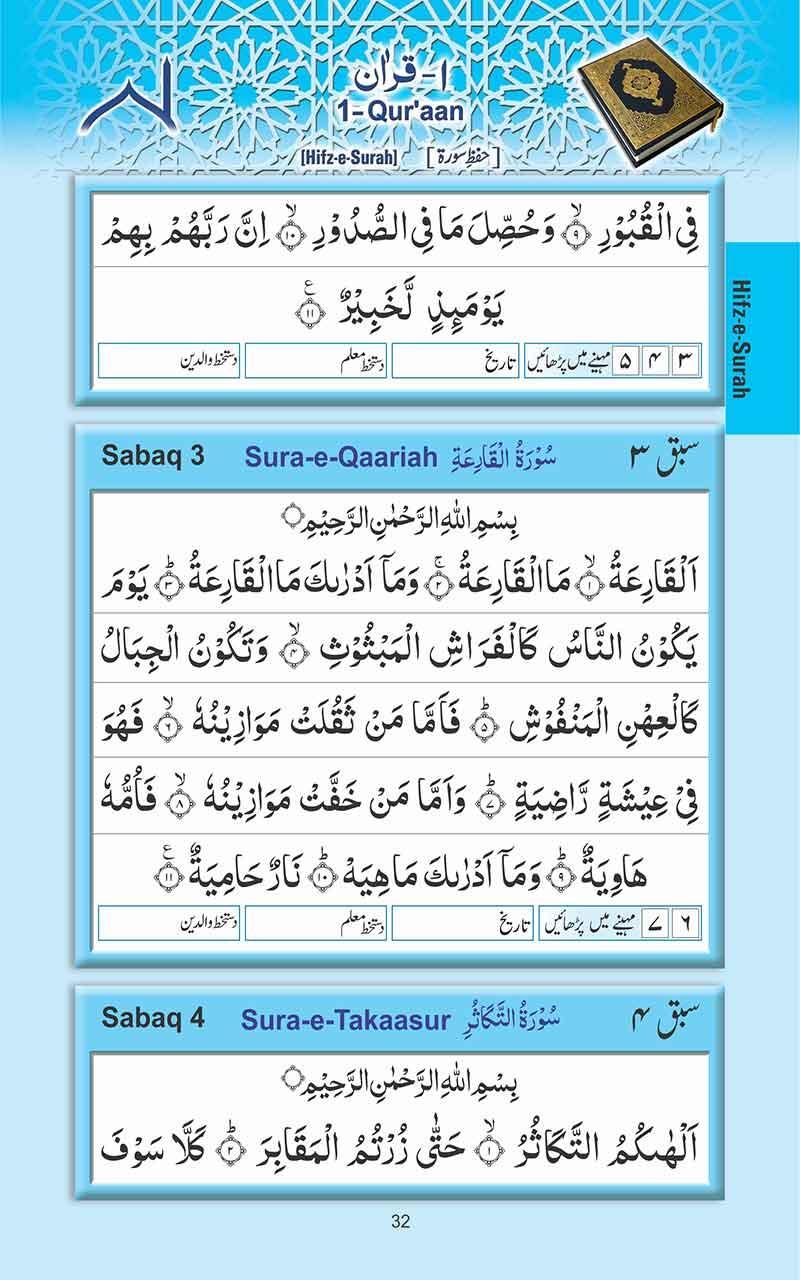 ۱- قراٰن
1-Qur'aan
[Hifz-e-Surah] [حفظِ سورة]
Hifz-e-Surah
فِي الْقُبُوْرِ ۙ﴿۹﴾ وَحُصِّلَ مَا فِي الصُّدُوْرِ ۙ﴿۱۰﴾ اِنَّ رَبَّهُمْ بِهِمْ
يَوْمَىِٕذٍ لَّخَبِيْرٌ ﴿۱۱﴾ ع
۳ ۴ ۵ مہینے میں پڑھائیں تاریخ دستخط معلم دستخط والدین
Sabaq 3 Sura-e-Qaariah سُوْرَةُ الْقَارِعَةِ سبق ۳
بِسْمِ اللهِ الرَّحْمٰنِ الرَّحِيْمِ
اَلْقَارِعَةُ ۙ﴿۱﴾ مَا الْقَارِعَةُ ۚ﴿۲﴾ وَمَآ اَدْرٰىكَ مَا الْقَارِعَةُ ؕ﴿۳﴾ يَوْمَ
يَكُوْنُ النَّاسُ كَالْفَرَاشِ الْمَبْثُوْثِ ۙ﴿۴﴾ وَتَكُوْنُ الْجِبَالُ
كَالْعِهْنِ الْمَنْفُوْشِ ؕ﴿۵﴾ فَاَمَّا مَنْ ثَقُلَتْ مَوَازِيْنُهٗ ۙ﴿۶﴾ فَهُوَ
فِيْ عِيْشَةٍ رَّاضِيَةٍ ؕ﴿۷﴾ وَاَمَّا مَنْ خَفَّتْ مَوَازِيْنُهٗ ۙ﴿۸﴾ فَاُمُّهٗ
هَاوِيَةٌ ؕ﴿۹﴾ وَمَآ اَدْرٰىكَ مَا هِيَهْ ؕ﴿۱۰﴾ نَارٌ حَامِيَةٌ ﴿۱۱﴾ ع
۶ ۷ مہینے میں پڑھائیں تاریخ دستخط معلم دستخط والدین
Sabaq 4 Sura-e-Takaasur سُوْرَةُ التَّكَاثُرِ سبق ۴
بِسْمِ اللهِ الرَّحْمٰنِ الرَّحِيْمِ
اَلْهٰىكُمُ التَّكَاثُرُ ۙ﴿۱﴾ حَتّٰى زُرْتُمُ الْمَقَابِرَ ؕ﴿۲﴾ كَلَّا سَوْفَ
32